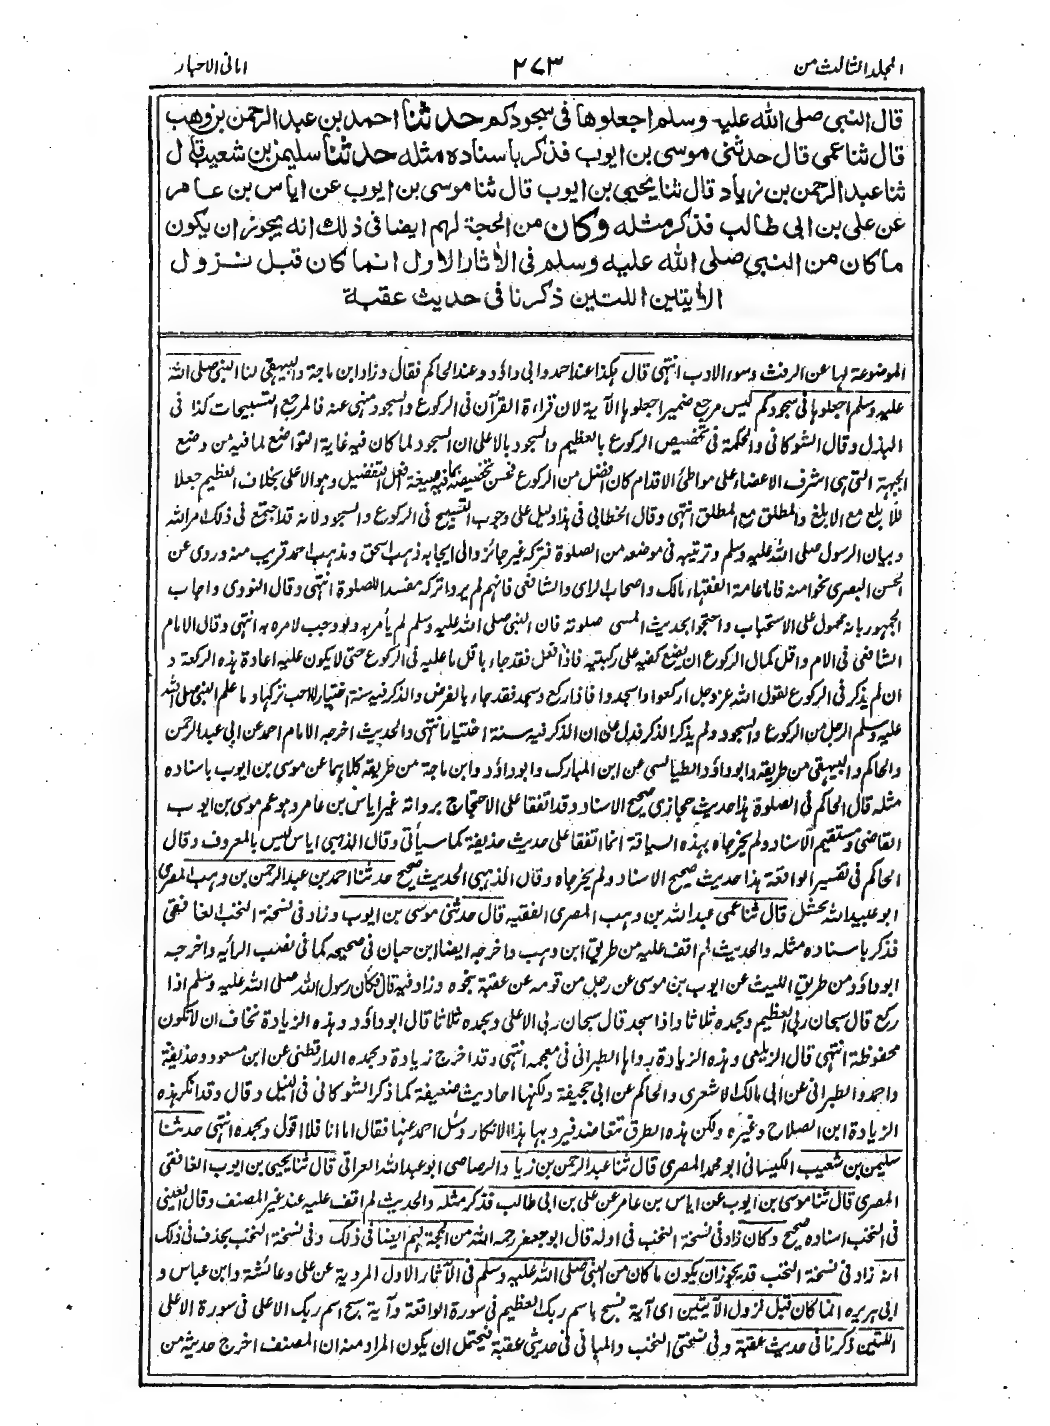 المجلد الثالث من
٢٧٣
امانی الاحبار
قال النبي صلى الله عليه وسلم اجعلوها فى سجودكم حدثنا احمد بن عبد الرحمن بن وهب
قال ثنا عمى قال حدثنى موسى بن ايوب فذكر باسناده مثله حدثنا سليمن بن شعيب قال
ثنا عبد الرحمن بن زياد قال ثنا يحيى بن ايوب قال ثنا موسى بن ايوب عن اياس بن عامر
عن على بن ابى طالب فذكر مثله وكان من الحجة لهم ايضا فى ذلك انه يجوز ان يكون
ما كان من النبي صلى الله عليه وسلم فى الأثار الاول انما كان قبل نزول
الأيتين اللتين ذكرنا فى حديث عقبة
الموضوعة لها عن الرفث وسوء الادب انتهى قال هكذا عند احمد وابى داؤد وعند الحاكم فقال وزاد ابن ماجة والبيهقى لنا النبى صلى الله
عليه وسلم اجعلوها فى سجودكم ليس مرجع ضمير اجعلوها الآية لان قراءة القرآن فى الركوع والسجود منهى عنه فالمرجع التسبيحات كذا فى
البذل وقال الشوكانى والحكمة فى تخصيص الركوع بالعظيم والسجود بالاعلى ان السجود لما كان فيه غاية التواضع لما فيه من وضع
الجبهة التى هى اشرف الاعضاء على مواطئ الاقدام كان افضل من الركوع فحسن تخصيصه بما فيه صيغة افعل التفضيل وهو الاعلى بخلاف العظيم جعلا
للابلغ مع الابلغ والمطلق مع المطلق انتهى وقال الخطابى فى هذا دليل على وجوب التسبيح فى الركوع والسجود لانه قد اجتمع فى ذلك امر الله
وبيان الرسول صلى الله عليه وسلم وترتيبه فى موضعه من الصلوة فتركه غير جائز والى ايجابه ذهب اسحق ومذهب احمد قريب منه وروى عن
الحسن البصرى نحوا منه فاما عامة الفقهاء مالك واصحاب الراى والشافعى فانهم لم يروا تركه مفسدا للصلوة انتهى وقال النووى واجاب
الجمهور بانه محمول على الاستحباب واحتجوا بحديث المسى صلوته فان النبى صلى الله عليه وسلم لم يأمره به ولو وجب لامره به انتهى وقال الامام
الشافعى فى الام واقل كمال الركوع ان يضع كفيه على ركبتيه فاذا فعل فقد جاء باقل ما عليه فى الركوع حتى لا يكون عليه اعادة هذه الركعة و
ان لم يذكر فى الركوع لقول الله عزوجل اركعوا واسجدوا فاذا ركع وسجد فقد جاء بالفرض والذكر فيه سنة اختيار لا احب تركها وما علم النبى صلى الله
عليه وسلم الرجل من الركوع والسجود ولم يذكر الذكر فدل على ان الذكر فيه سنة اختيار انتهى والحديث اخرجه الامام احمد عن ابى عبد الرحمن
والحاكم والبيهقى من طريقه وابوداؤد والطيالسى عن ابن المبارك وابوداؤد وابن ماجة من طريقه كلاهما عن موسى بن ايوب باسناده
مثله قال الحاكم فى الصلوة هذا حديث حجازى صحيح الاسناد وقد اتفقا على الاحتجاج برواته غير اياس بن عامر وهو عم موسى بن ايوب
القاضى ومستقيم الاسناد ولم يخرجاه بهذه السياقة انما اتفقا على حديث حذيفة كما سيأتى وقال الذهبى اياس ليس بالمعروف وقال
الحاكم فى تفسير الواقعة هذا حديث صحيح الاسناد ولم يخرجاه وقال الذهبى الحديث صحيح حدثنا احمد بن عبد الرحمن بن وهب المصرى
ابو عبيد الله بحشل قال ثنا عمى عبد الله بن وهب المصرى الفقيه قال حدثنى موسى بن ايوب وزاد فى نسخة النخب الغافقى
فذكر باسناده مثله والحديث لم اقف عليه من طريق ابن وهب واخرجه ايضا ابن حبان فى صحيحه كما فى نصب الرايه واخرجه
ابوداؤد من طريق الليث عن ايوب بن موسى عن رجل من قومه عن عقبة بنحوه وزاد فيه قال فكان رسول الله صلى الله عليه وسلم اذا
ركع قال سبحان ربى العظيم وبحمده ثلاثا واذا سجد قال سبحان ربى الاعلى وبحمده ثلاثا قال ابوداؤد وهذه الزيادة نخاف ان لا تكون
محفوظة انتهى قال الزيلعى وهذه الزيادة رواها الطبرانى فى معجمه انتهى وقد اخرج زيادة وبحمده الدارقطنى عن ابن مسعود وحذيفة
واحمد والطبرانى عن ابى مالك الاشعرى والحاكم عن ابى جحيفة ولكنها احاديث ضعيفة كما ذكر الشوكانى فى النيل وقال وقد انكر هذه
الزيادة ابن الصلاح وغيره ولكن هذه الطرق تتعاضد فيرد بها هذا الانكار وسئل احمد عنها فقال اما انا فلا اقول وبحمده انتهى حدثنا
سليمن بن شعيب الكيسانى ابو محمد المصرى قال ثنا عبد الرحمن بن زياد الرصاصى ابو عبد الله العراقى قال ثنا يحيى بن ايوب الغافقى
المصرى قال ثنا موسى بن ايوب عن اياس بن عامر عن على بن ابى طالب فذكر مثله والحديث لم اقف عليه عند غير المصنف وقال العينى
فى النخب اسناده صحيح وكان زاد فى نسخة النخب فى اوله قال ابو جعفر رحمه الله من الحجة لهم ايضا فى ذلك وفى نسخة النخب بحذف فى ذلك
انه زاد فى نسخة النخب قد يجوز ان يكون ما كان من النبى صلى الله عليه وسلم فى الآثار الاول المروية عن على وعائشة وابن عباس و
ابى هريره انما كان قبل نزول الآيتين اى آية فسبح باسم ربك العظيم فى سورة الواقعة وآية سبح اسم ربك الاعلى فى سورة الاعلى
اللتين ذكرنا فى حديث عقبة وفى نسختى النخب والمبانى فى حديثى عقبة فيحتمل ان يكون المراد منه ان المصنف اخرج حديثه من